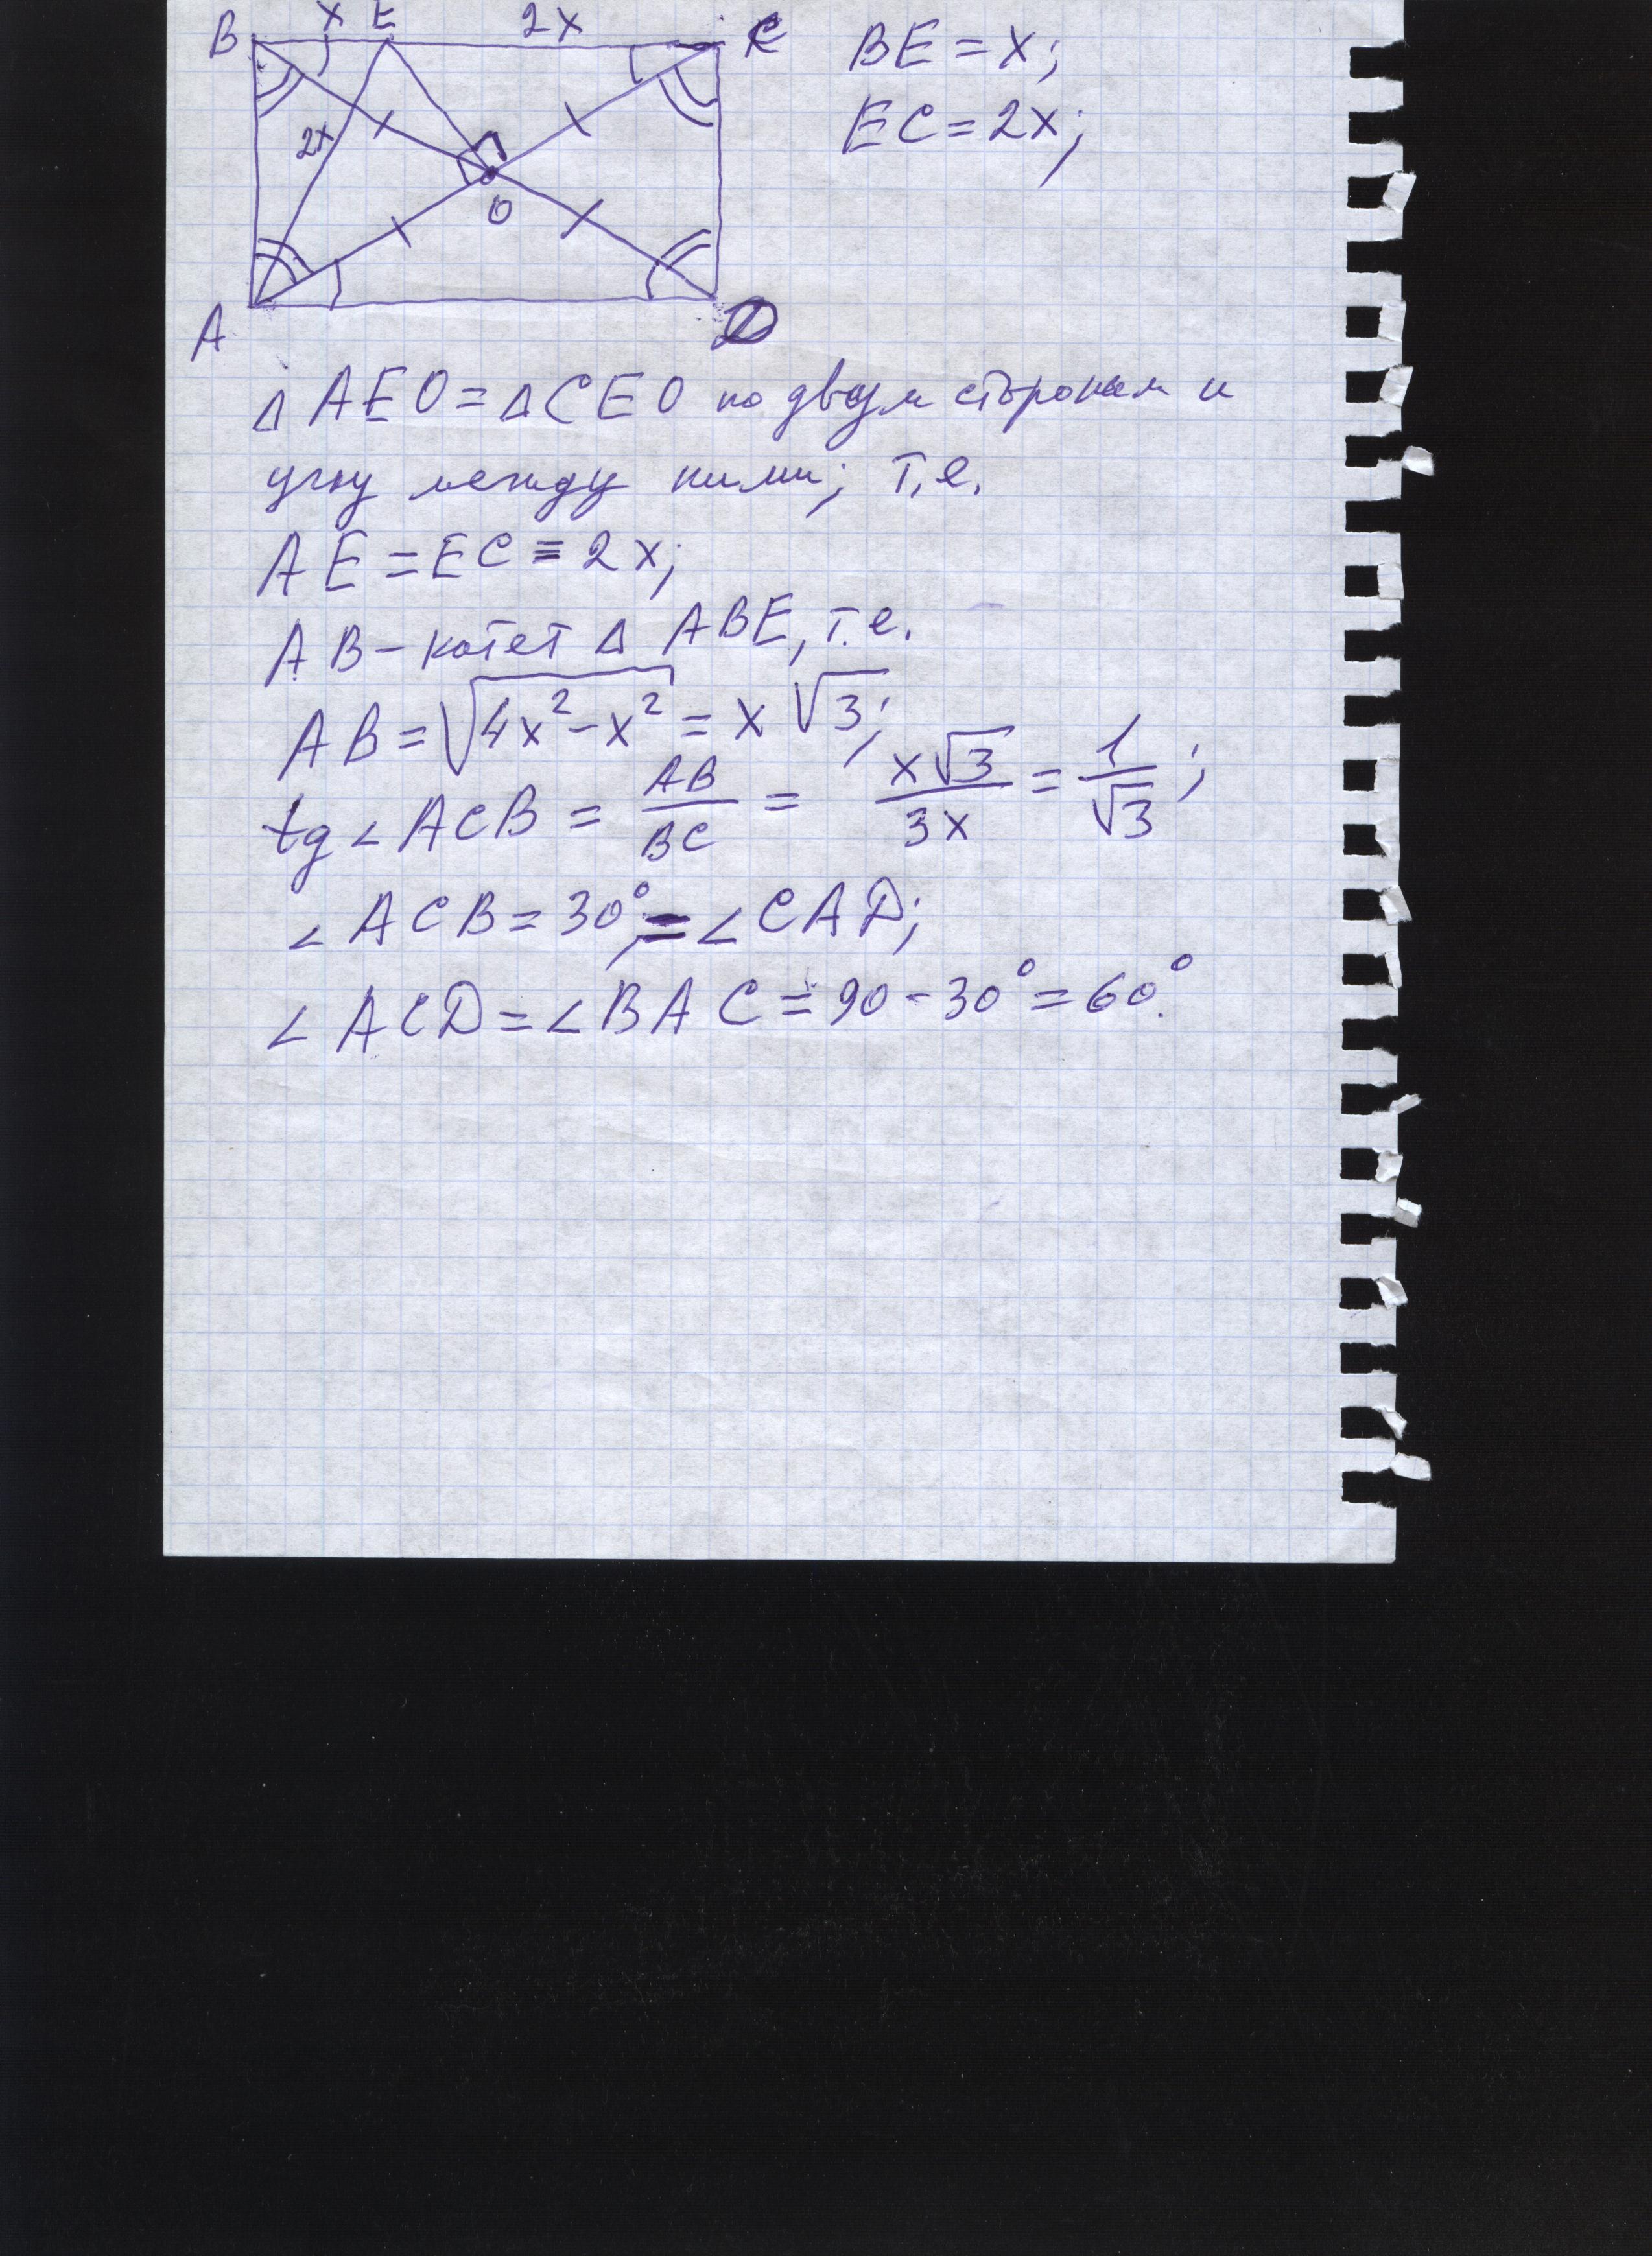 B x E 2x C
BE = x;
EC = 2x;
2x
O
A D
△ AEO = △ CEO по двум сторонам и
углу между ними; т.е.
AE = EC = 2x;
AB – катет △ ABE, т.е.
AB = √(4x² – x²) = x √3;
tg ∠ ACB = AB/BC = x√3/3x = 1/√3;
∠ ACB = 30° = ∠ CAD;
∠ ACD = ∠ BAC = 90 - 30° = 60°.